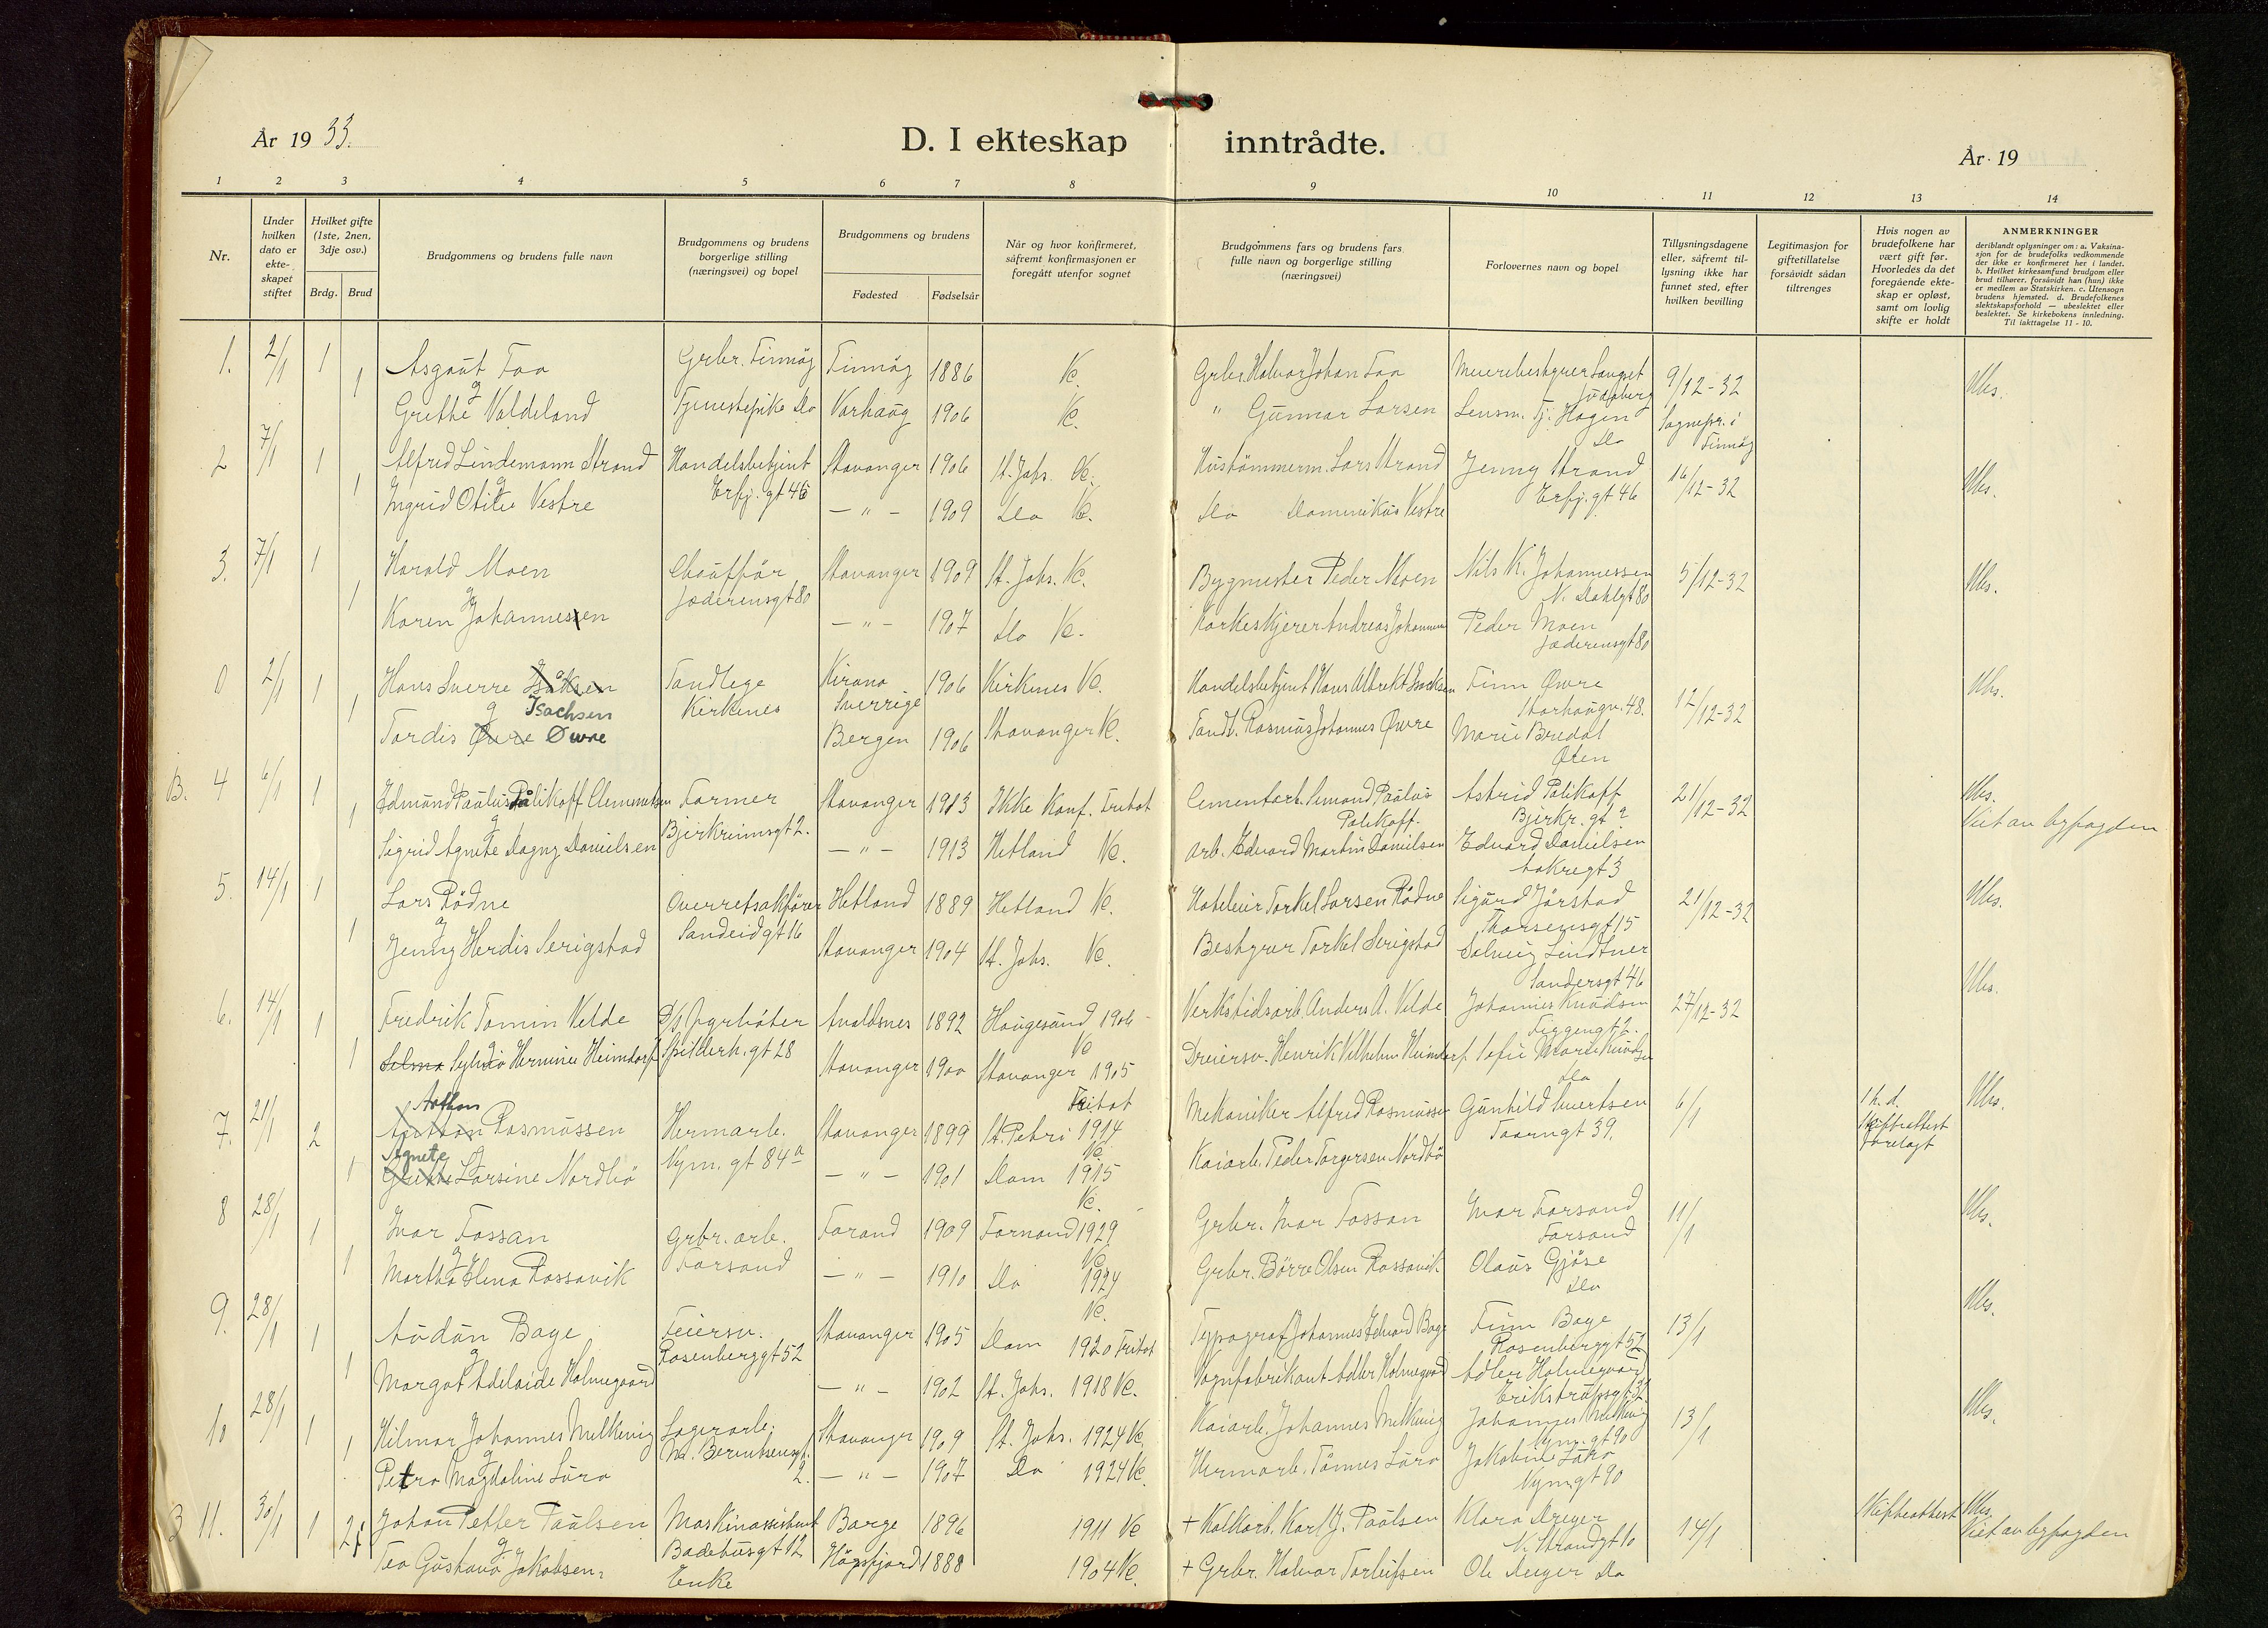 År 1933.
D. I ekteskap inntrådte.
År 19
1 2 3 4 5 6 7 8 9 10 11 12 13 14
Nr.
Under hvilken dato er ekte- skapet stiftet
Hvilket gifte (1ste, 2nen, 3dje osv.)
Brdg. Brud
Brudgommens og brudens fulle navn
Brudgommens og brudens borgerlige stilling (næringsvei) og bopel
Brudgommens og brudens
Fødested Fødselsår
Når og hvor konfirmeret, såfremt konfirmasjonen er foregått utenfor sognet
Brudgommens fars og brudens fars fulle navn og borgerlige stilling (næringsvei)
Forlovernes navn og bopel
Tillysningsdagene eller, såfremt til- lysning ikke har funnet sted, efter hvilken bevilling
Legitimasjon for giftetillatelse forsåvidt sådan tiltrenges
Hvis nogen av brudefolkene har vært gift før. Hvorledes da det foregående ekte- skap er opløst, samt om lovlig skifte er holdt
ANMERKNINGER
deriblandt oplysninger om: a. Vaksina- sjon for de brudefolks vedkommende der ikke er konfirmeret her i landet. b. Hvilket kirkesamfund brudgom eller brud tilhører, forsåvidt han (hun) ikke er medlem av Statskirken. c. Utensogn brudens hjemsted. d. Brudefolkenes slektskapsforhold — ubeslektet eller beslektet. Se kirkebokens innledning. Til iakttagelse 11 - 10.
1. 2/1 1 Asgaut Foa Grbr. Finnøy Finnøy 1886 Vc. Grbr. Halvor Johan Foa Meieribestyrer Sangset 9/12-32 Ubs.
Judaberg
1 g Grethe Valdeland Tjenestepike Do Varhaug 1906 Vc. " Gunnar Larsen Lensm. Tj. Hagen Sognepr. i
Do Finnøy
2 7/1 1 Alfred Lindemann Strand Handelsbetjent Stavanger 1906 St. Johs. Vc. Hustömmerm. Lars Strand Jenny Strand 16/12-32 Ubs.
Erfj. gt 46 Erfj. gt 46
1 g Ingrid Otilie Vestre — " — 1909 Do Vc. Do Dominikus Vestre
3. 7/1 1 Harald Moen Chauffør Stavanger 1909 St. Johs. Vc. Bygmester Peder Moen Nils K. Johannessen 5/12-32 Ubs.
Jæderensgt 80 N. Dahlsgt 80
1 g Karen Johannessen — " — 1907 Do Vc. Korkeskjerer Andreas Johannessen Peder Moen
Jæderensgt 80
0 2/1 1 Hans Sverre Isaksen Tandlege Kiruna 1906 Kirkenes Vc. Handelsbetjent Hans Albrekt Isaksen Finn Øwre 12/12-32 Ubs.
g Isachsen Kirkenes Sverrige Storhaugv. 48.
1 Tordis Øvre Øwre Bergen 1906 Stavanger Vc. Tandl. Rasmus Johannes Øwre Marie Bredal
B. 4 6/1 1 Edmund Paulus Pålikoff Clemmetsen Farmer Stavanger 1913 Ikke Konf. Fritat Cementarb. Simond Paulus Astrid Polikoff 21/12-32 Ubs.
Bjerkreimsgt 2. Polikoff. Bjerkr. gt 2 Viet av byfogden
1 g Sigrid Agnete Dagny Danielsen — " — 1913 Hetland Vc. Arb. Edvard Martin Danielsen Edvard Danielsen
Aakregt 3
5. 14/1 1 Lars Rödne Overretsakförer Hetland 1889 Hetland Vc. Hoteleier Torkel Larsen Rödne Sigurd Jörstad 21/12-32 Ubs.
Sandeidgt 16 Thorsensgt 15
1 g Jenny Herdis Serigstad Stavanger 1904 St. Johs. Vc. Bestyrer Torkel Serigstad Solveig Lindtner
Sandersgt 46
6. 14/1 1 Fredrik Tomin Velde D/S Fyrböter Avaldsnes 1892 Haugesund 1906 Verkstedsarb. Anders A. Velde Johannes Knudsen 27/12-32 Ubs.
Vc
1 g Selma Sylvia Herminie Heimdorf Spilderh. gt 28 Stavanger 1900 Stavanger 1915 Dreiersv. Henrik Vilhelm Heimdorf Sofie Marie Knudsen
Fritat Do
Arthur
7. 21/1 2 Anton Rasmussen Hermarb. Stavanger 1899 St. Petri 1914 Mekaniker Alfred Rasmussen Gunhild Svertsen 6/1 Skifteattest forelagt Ubs.
Nym. gt 84 a Vc. Taarngt 39.
Agnete
1 g Grethe Larsine Nordbö — " — 1901 Dom 1915 Kaiarb. Peder Torgersen Nordbö
Vc.
8 28/1 1 Ivar Fossan Grbr. arb. Forsand 1909 Forsand 1929 Grbr. Ivar Fossan Ivar Forsand 11/1 Ubs.
Forsand Vc Forsand
1 g Martha Elena Rossavik — " — 1910 Do 1924 Grbr. Börre Olsen Rossavik Olaus Gjöse
Vc. Do
9. 28/1 1 Audun Bage Feiersv. Stavanger 1905 Dom 1920 Fritat Typograf Johannes Edvard Bage Finn Bage 13/1 Ubs.
Rosenberggt 52 Rosenberggt 52
1 g Margot Adelaide Holmegaard — " — 1902 St. Johs. 1918 Vc. Vognfabrikant Adler Holmegaard Adler Holmegaard
10 28/1 1 Hilmar Johannes Melkevig Lagerarb. Stavanger 1909 St. Johs. 1924 Vc. Kaiarb. Johannes Melkevig Johannes Melkevig 13/1 Ubs.
Nym. gt 90
1 g Petra Magdaline Lura 2. — " — 1907 Do 1924 Vc. Hermarb. Tönnes Lura Jakobine Lura
Nymgt 90
B 11. 30/1 1 Johan Petter Paulsen Maskinassistent Borge 1896 1911 Vc + Kalkarb. Karl J. Paulsen Klara Dreyer 14/1 Skifteattest Ubs.
Badehusgt 12 N. Strandgt 10 Viet av byfogden
2 g Tea Gustava Jakobsen Enke Högsfjord 1888 1904 Vc. + Grbr. Halvor Torleifsen Ole Dreyer Do